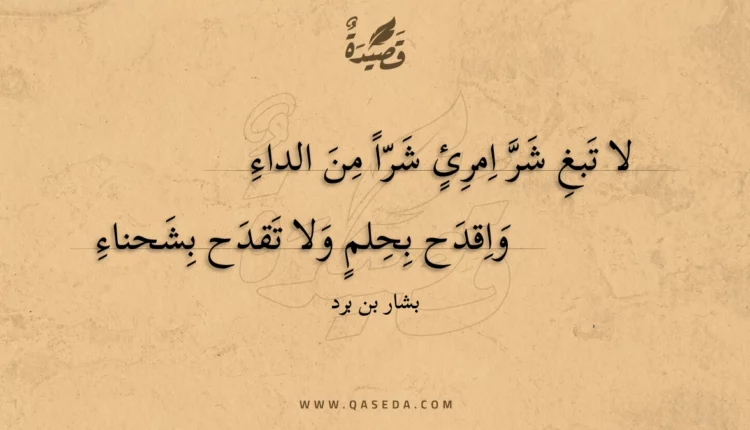 قَصِيدَةٌ
لا تَبغِ شَرَّ اِمرِئٍ شَرّاً مِنَ الداءِ
وَاِقدَح بِحِلمٍ وَلا تَقدَح بِشَحناءِ
بشار بن برد
WWW.QASEDA.COM